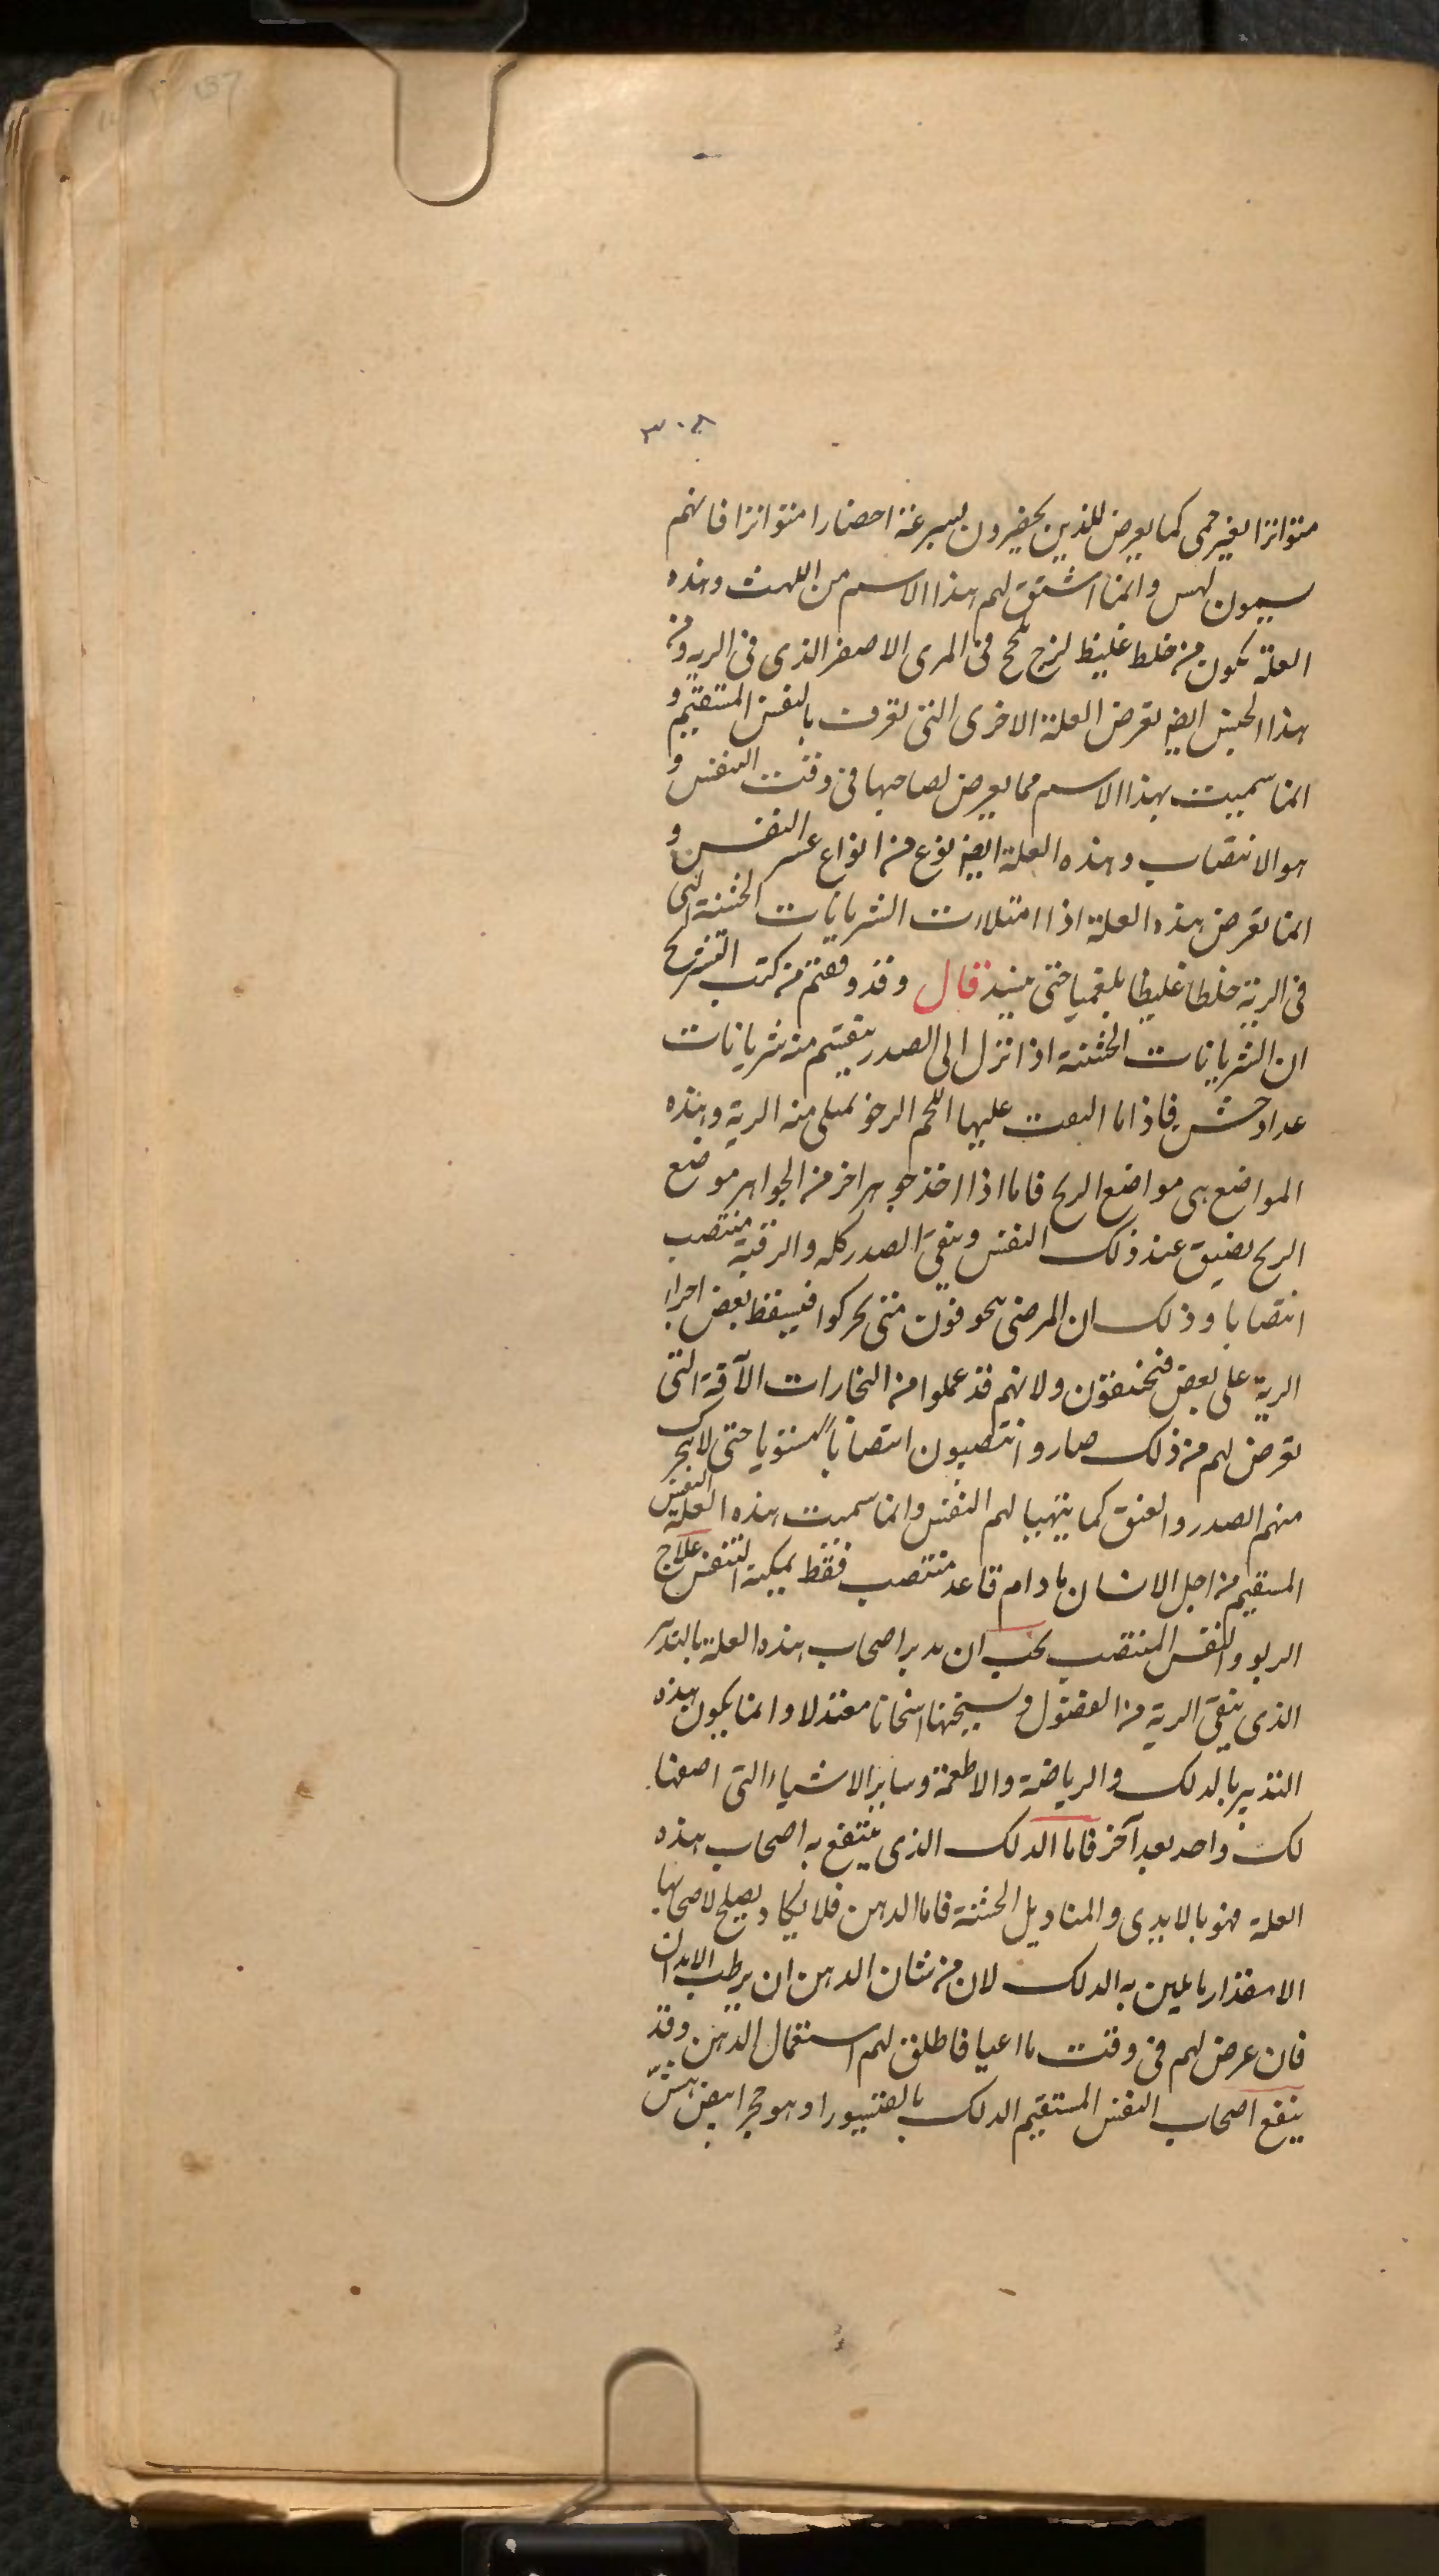 ١٣٧
٣٠٨
متواترا بغير حمى كما يعرض للذين يحضرون بسرعة احضارا متواترا فانهم
يسمون لهس وانما اشتق لهم هذا الاسم من اللهث وهذه
العلة يكون من خلط غليظ لزج يلحج فى المرى الاصفر الذى فى الرية ومن
هذا الجنس ايضا يعرض العلة الاخرى التى تعرف بالنفس المستقيم و
انما سميت بهذا الاسم مما يعرض لصاحبها فى وقت التنفس و
هو الانتصاب وهذه العلة ايضا نوع من انواع عسر النفس و
انما تعرض هذه العلة اذا امتلات الشريانات الخشنة التى
فى الرية خلطا غليظا بلغميا حتى قال وقد وقفتم من كتب التشريح
ان الشريانات الخشنة اذا نزل الى الصدر ينقسم منه شريانات
عداد خشن فاذا ما اليها اللحم الرخو يمتلى منه الرية وهذه
المواضع هى مواضع الريح فاما اذا اخذ جوهر اخر من الجواهر موضع
الريح يضيق عند ذلك النفس ويبقى الصدر كله والرقبة منتصب
انتصابا وذلك ان المرضى يخوفون متى تحركوا فيسقط بعض اجزا
الرية على بعض فيختنقون ولانهم قد عملوا من التجارات الآفة التى
تعرض لهم من ذلك صاروا ينتصبون انتصابا مستويا حتى لا يتحرك
منهم الصدر والعنق كما يتهيا لهم النفس وانما سميت هذه العلة النفس
المستقيم من اجل الانسان ما دام قاعد منتصب فقط يمكنه التنفس علاج
الربو والنفس المنتصب يجب ان يدبر اصحاب هذه العلة بالتدبير
الذى ينقى الرية من الفضول ويسخنها اسخانا معتدلا وانما يكون هذه
التدبير بالدلك والرياضة والاطعمة وساير الاشياء التى اصفها
لك واحد بعد آخر فاما الدلك الذى ينتفع به اصحاب هذه
العلة فهو بالايدى والمناديل الخشنة فاما الدهن فلا يكاد يصلح لاصحابها
الا مقدار ما يلين به الدلك لان من شان الدهن ان يرطب الابدان
فان عرض لهم فى وقت ما اعيا فاطلق لهم استعمال الدهن وقد
ينفع اصحاب النفس المستقيم الدلك وهو حجر ابيض هش